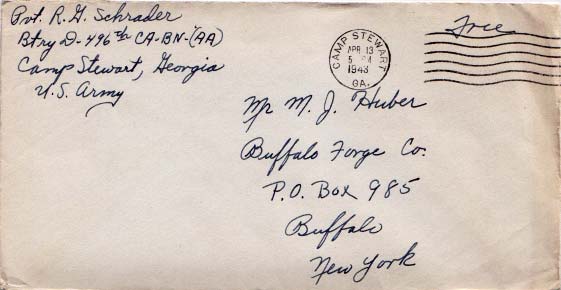 Pvt. R. G. Schrader
Btry D-496th CA-BN-(AA)
Camp Stewart, Georgia
U.S. Army
CAMP STEWART
APR 13
5
1943
GA.
Free
Mr M. J. Huber
Buffalo Forge Co.
P.O. Box 985
Buffalo
New York